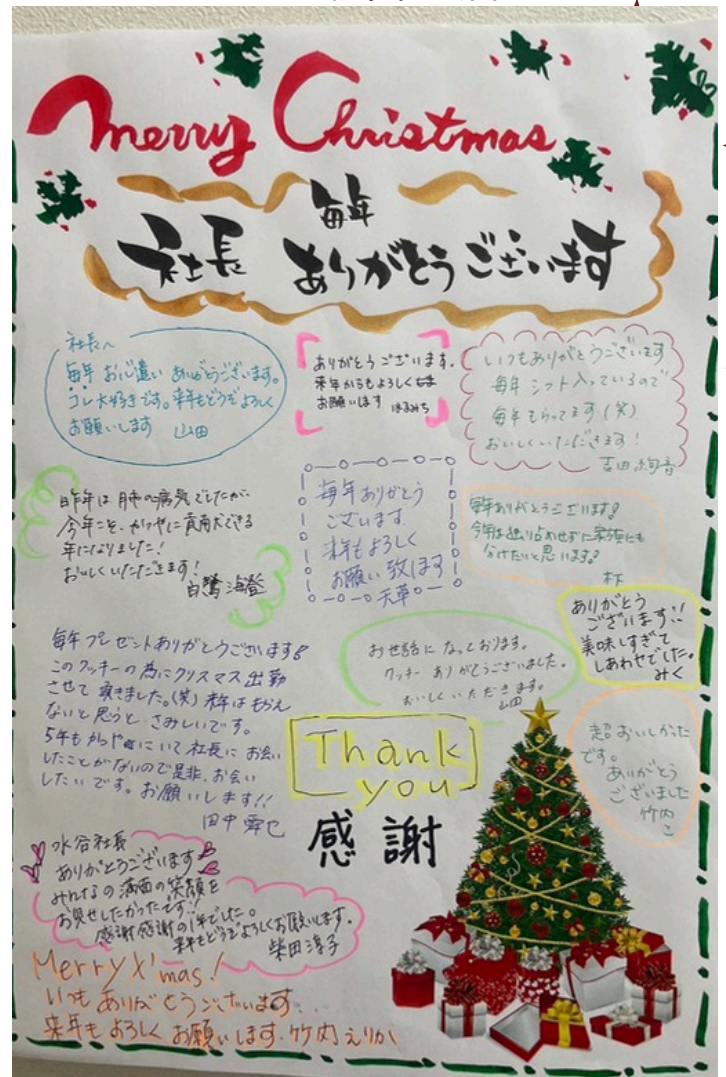 Merry Christmas
毎年
社長 ありがとうございます
社長へ
毎年 お心遣い ありがとうございます。
コレ大好きです。来年もどうぞよろしく
お願いします 山田
ありがとうございます。
来年からもよろしく
お願いします はるみち
いつもありがとうございます
毎年 シフト入っているので
毎年もらってます(笑)
おいしくいただきます!
吉田 絢音
昨年は の病気でしたが、
今年こそ、かつやに貢献できる
年になりました!
おいしくいただきます!
白鷺 海登
毎年ありがとう
ございます
来年もよろしく
お願い致します
天草
毎年ありがとうございます!
今年は独り占めせずに家族にも
分けたいと思います!
ありがとう
ございます!!
美味しすぎて
しあわせでした。
みく
毎年プレゼントありがとうございます
このクッキーの為にクリスマス出勤
させて頂きました。(笑) 来年はもらえ
ないと思うと、さみしいです。
5年もかつやにいて社長にお会い
したことがないので是非、お会い
したいです。お願いします!!
田中 舜也
お世話になっております。
クッキーありがとうございました。
おいしくいただきます。
山田
Thank
you
感謝
超おいしかった
です。
ありがとう
ございました
竹内
水谷社長
ありがとうございます
みんなの満面の笑顔を
お見せしたかったです!!
感謝感謝の1年でした。
来年もどうぞよろしくお願いします。
柴田淳子
Merry X'mas!
いつもありがとうございます
来年もよろしくお願いします。竹内えりか